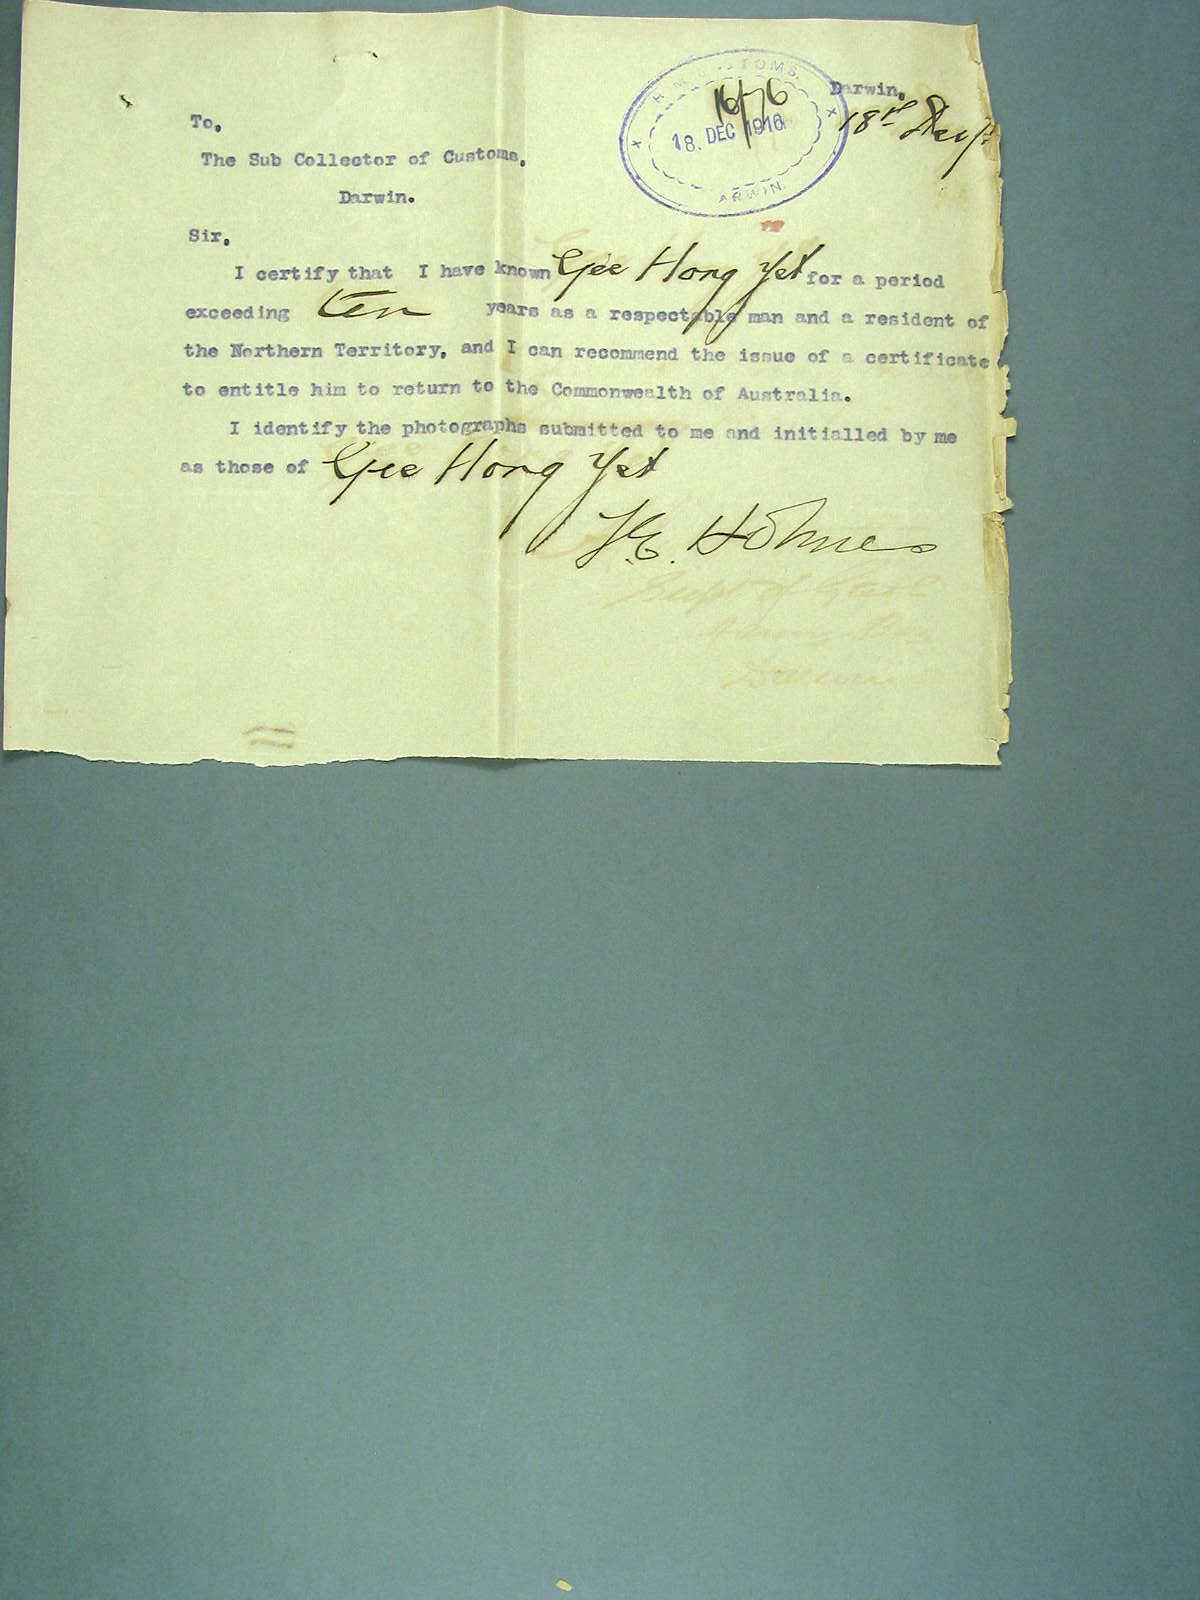 Darwin.
18th Dec
H. M. CUSTOMS.
16/76
18. DEC 1916
DARWIN.
To,
The Sub Collector of Customs.
Darwin.
Sir,
I certify that I have known Gee Hong Yet for a period
exceeding ten years as a respectable man and a resident of
the Northern Territory, and I can recommend the issue of a certificate
to entitle him to return to the Commonwealth of Australia.
I identify the photographs submitted to me and initialled by me
as those of Gee Hong Yet
Holmes